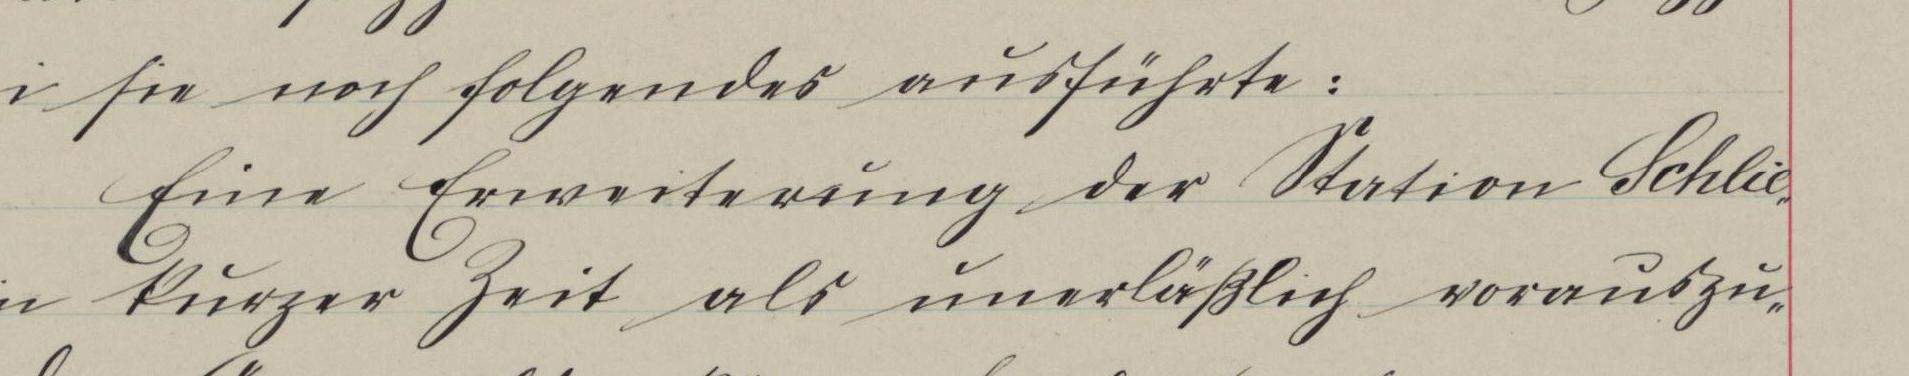 i sie noch folgendes ausführte:
Eine Erweiterung der Station Schlie-
in kurzer Zeit als unerläßlich vorauszu-